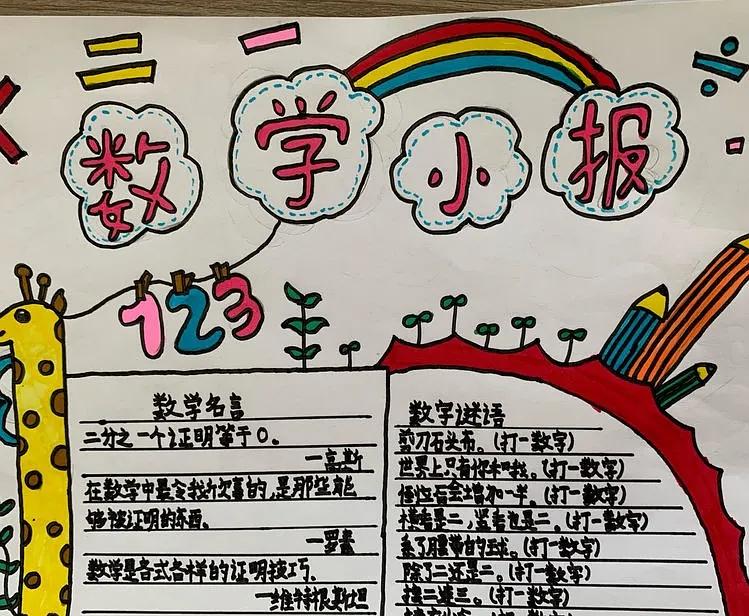 数学小报
123
数学名言
二分之一个证明等于0。
—高斯
在数学中最令我欣喜的,是那些能
够被证明的东西。
—罗素
数学是各式各样的证明技巧.
—维特根斯坦
数字谜语
剪刀石头布。(打一数字)
世界上只有你和我。(打一数字)
悟性后会增加一半。(打一数字)
横看是二,竖看也是二。(打一数字)
系了腰带的球。(打一数字)
除了二还是二。(打一数字)
接二连三。(打一数字)